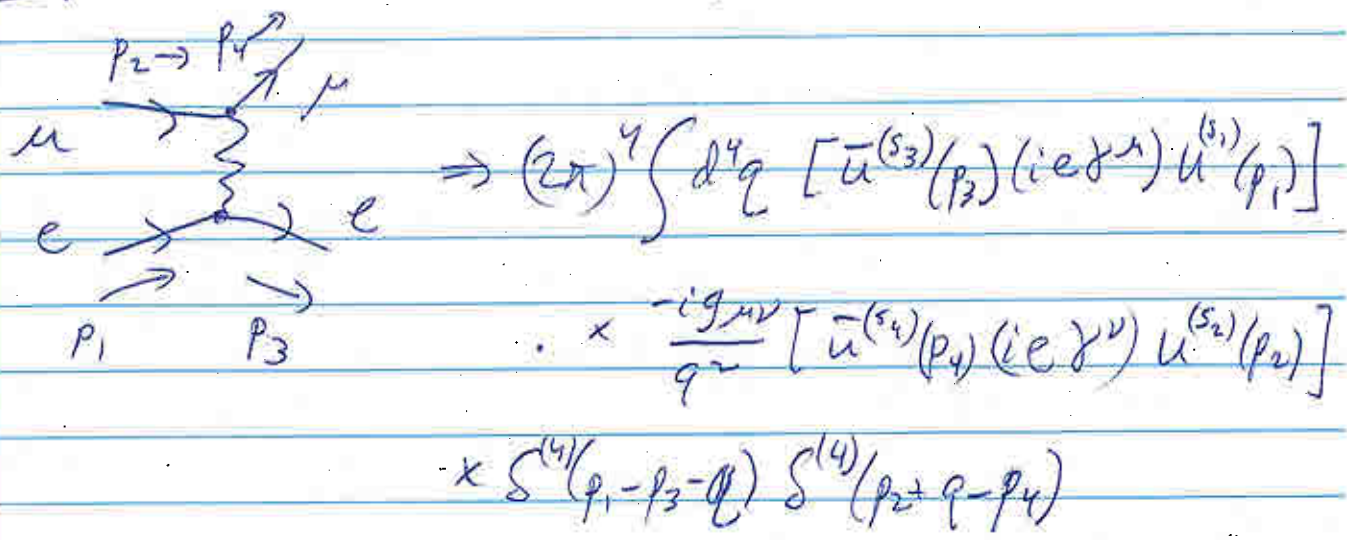 p₂→ p₄
μ
μ
e e
p₁ p₃
⇒ (2π)⁴ ∫ d⁴q [ū^(s₃)(p₃)(ieγ^μ) u^(s₁)(p₁)]
. × -ig_μν/q² [ū^(s₄)(p₄)(ieγ^ν) u^(s₂)(p₂)]
× δ^(4)(p₁-p₃-q) δ^(4)(p₂+q-p₄)